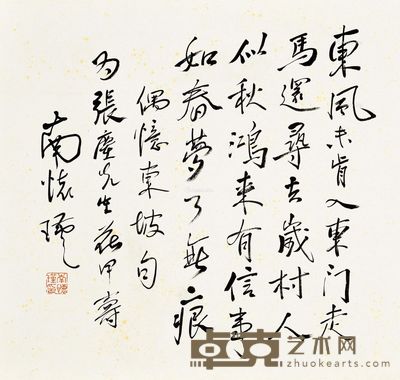 東風未肯入東门走
馬還尋去歲村人
似秋鴻来有信事
如春夢了無痕
偶憶東坡句
为張先生花甲壽
南懷瑾
卓克艺术网
www.zhuokearts.com